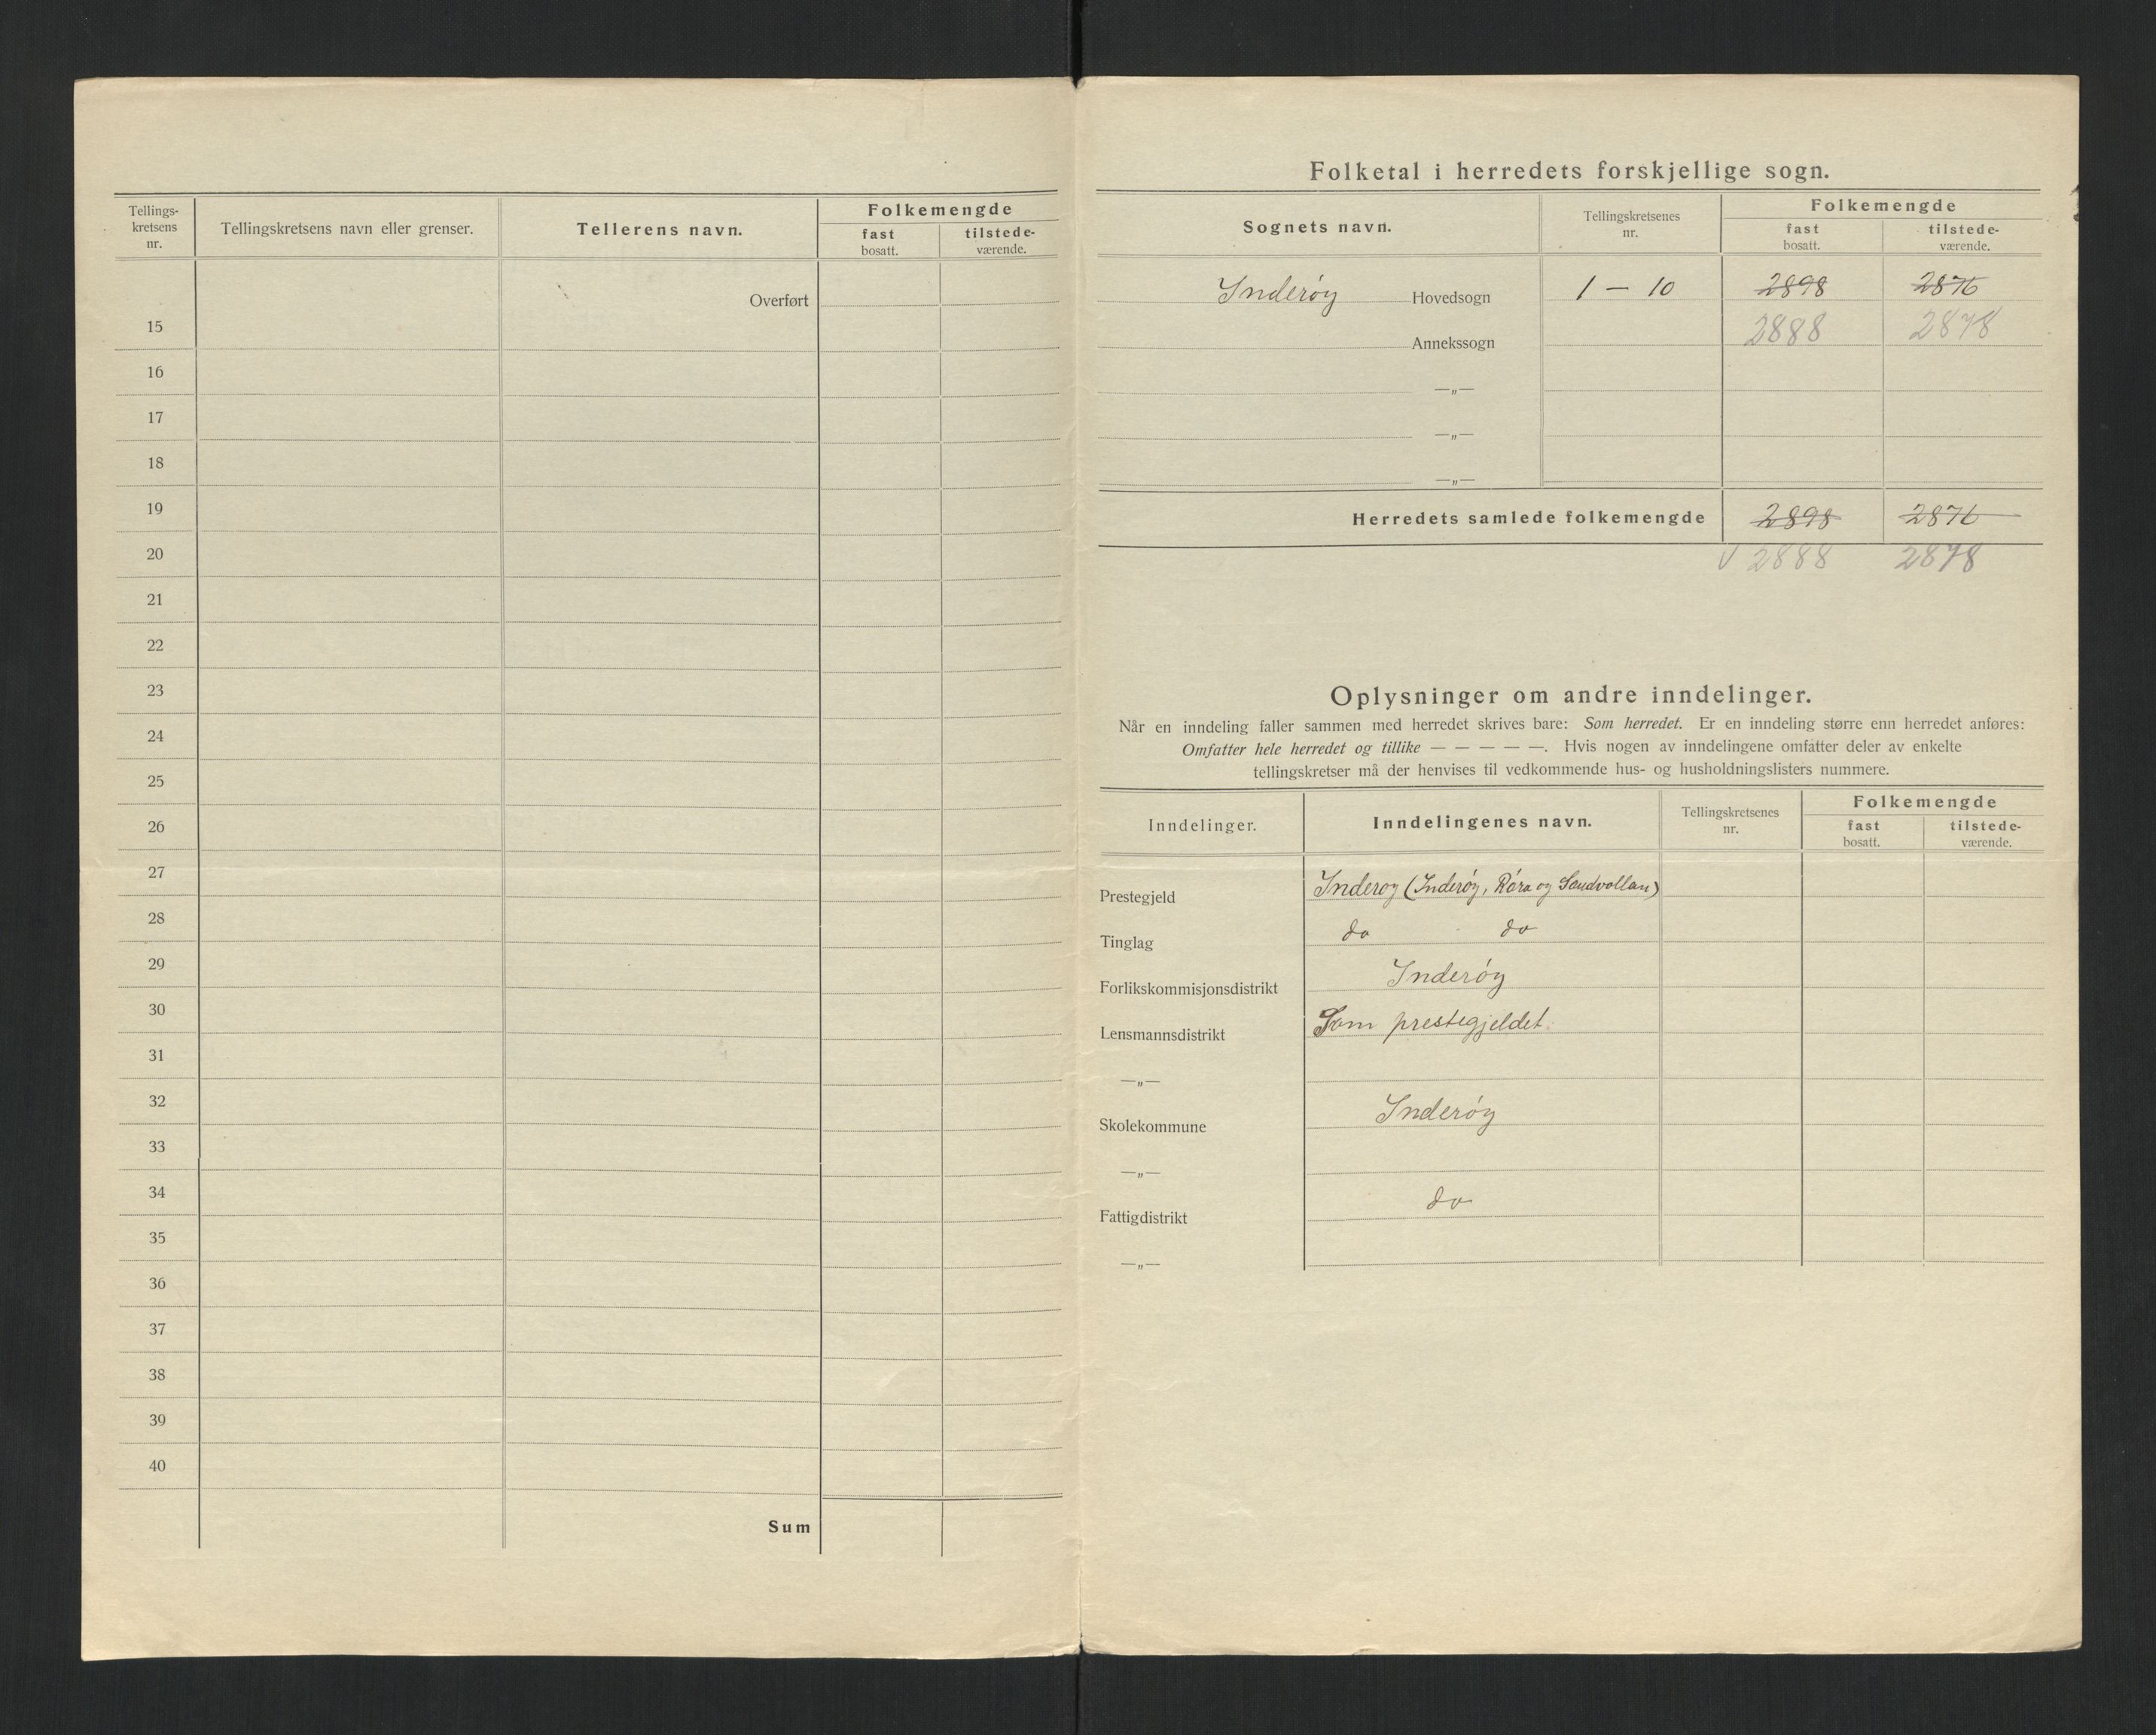 Tellings-
kretsens
nr.
Tellingskretsens navn eller grenser.
Tellerens navn.
Folkemengde
fast
bosatt.
tilstede-
værende.
Overført
15
16
17
18
19
20
21
22
23
24
25
26
27
28
29
30
31
32
33
34
35
36
37
38
39
40
Sum
Folketal i herredets forskjellige sogn.
Sognets navn.
Tellingskretsenes
nr.
Folkemengde
fast
bosatt.
tilstede-
værende.
Inderóy Hovedsogn 1 — 10 2898 2876
2888 2878
Annekssogn
—„—
—„—
—„—
Herredets samlede folkemengde 2898 2876
√ 2888 2878
Oplysninger om andre inndelinger.
Når en inndeling faller sammen med herredet skrives bare: Som herredet. Er en inndeling større enn herredet anføres:
Omfatter hele herredet og tillike — — — — —. Hvis nogen av inndelingene omfatter deler av enkelte
tellingskretser må der henvises til vedkommende hus- og husholdningslisters nummere.
Inndelinger.
Inndelingenes navn.
Tellingskretsenes
nr.
Folkemengde
fast
bosatt.
tilstede-
værende.
Prestegjeld Inderoy (Inderóy, Róra og Sandvollan)
Tinglag do do
Forlikskommisjonsdistrikt Inderóy
Lensmannsdistrikt Som prestegjeldet.
—„—
Skolekommune Inderóy
—„—
Fattigdistrikt do
—„—